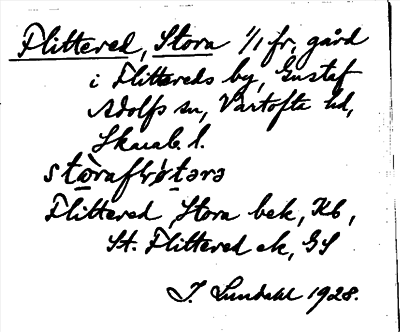 Flittered, Stora 1/1 fr. gård
i Flittereds by, Gustaf
Adolfs sn, Vartofta hd,
Skarab. l.
Flittered Stora bek, Kb,
St. Flittered ek, GS
I. Lundahl 1928.